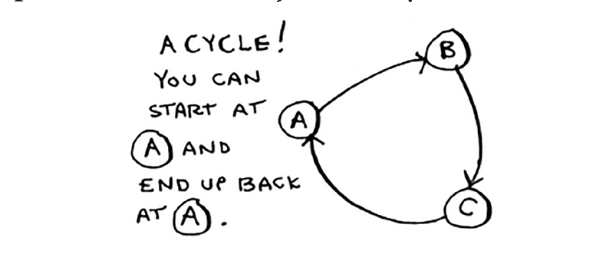 A CYCLE!
YOU CAN
START AT
A AND
END UP BACK
AT A.
A
B
C